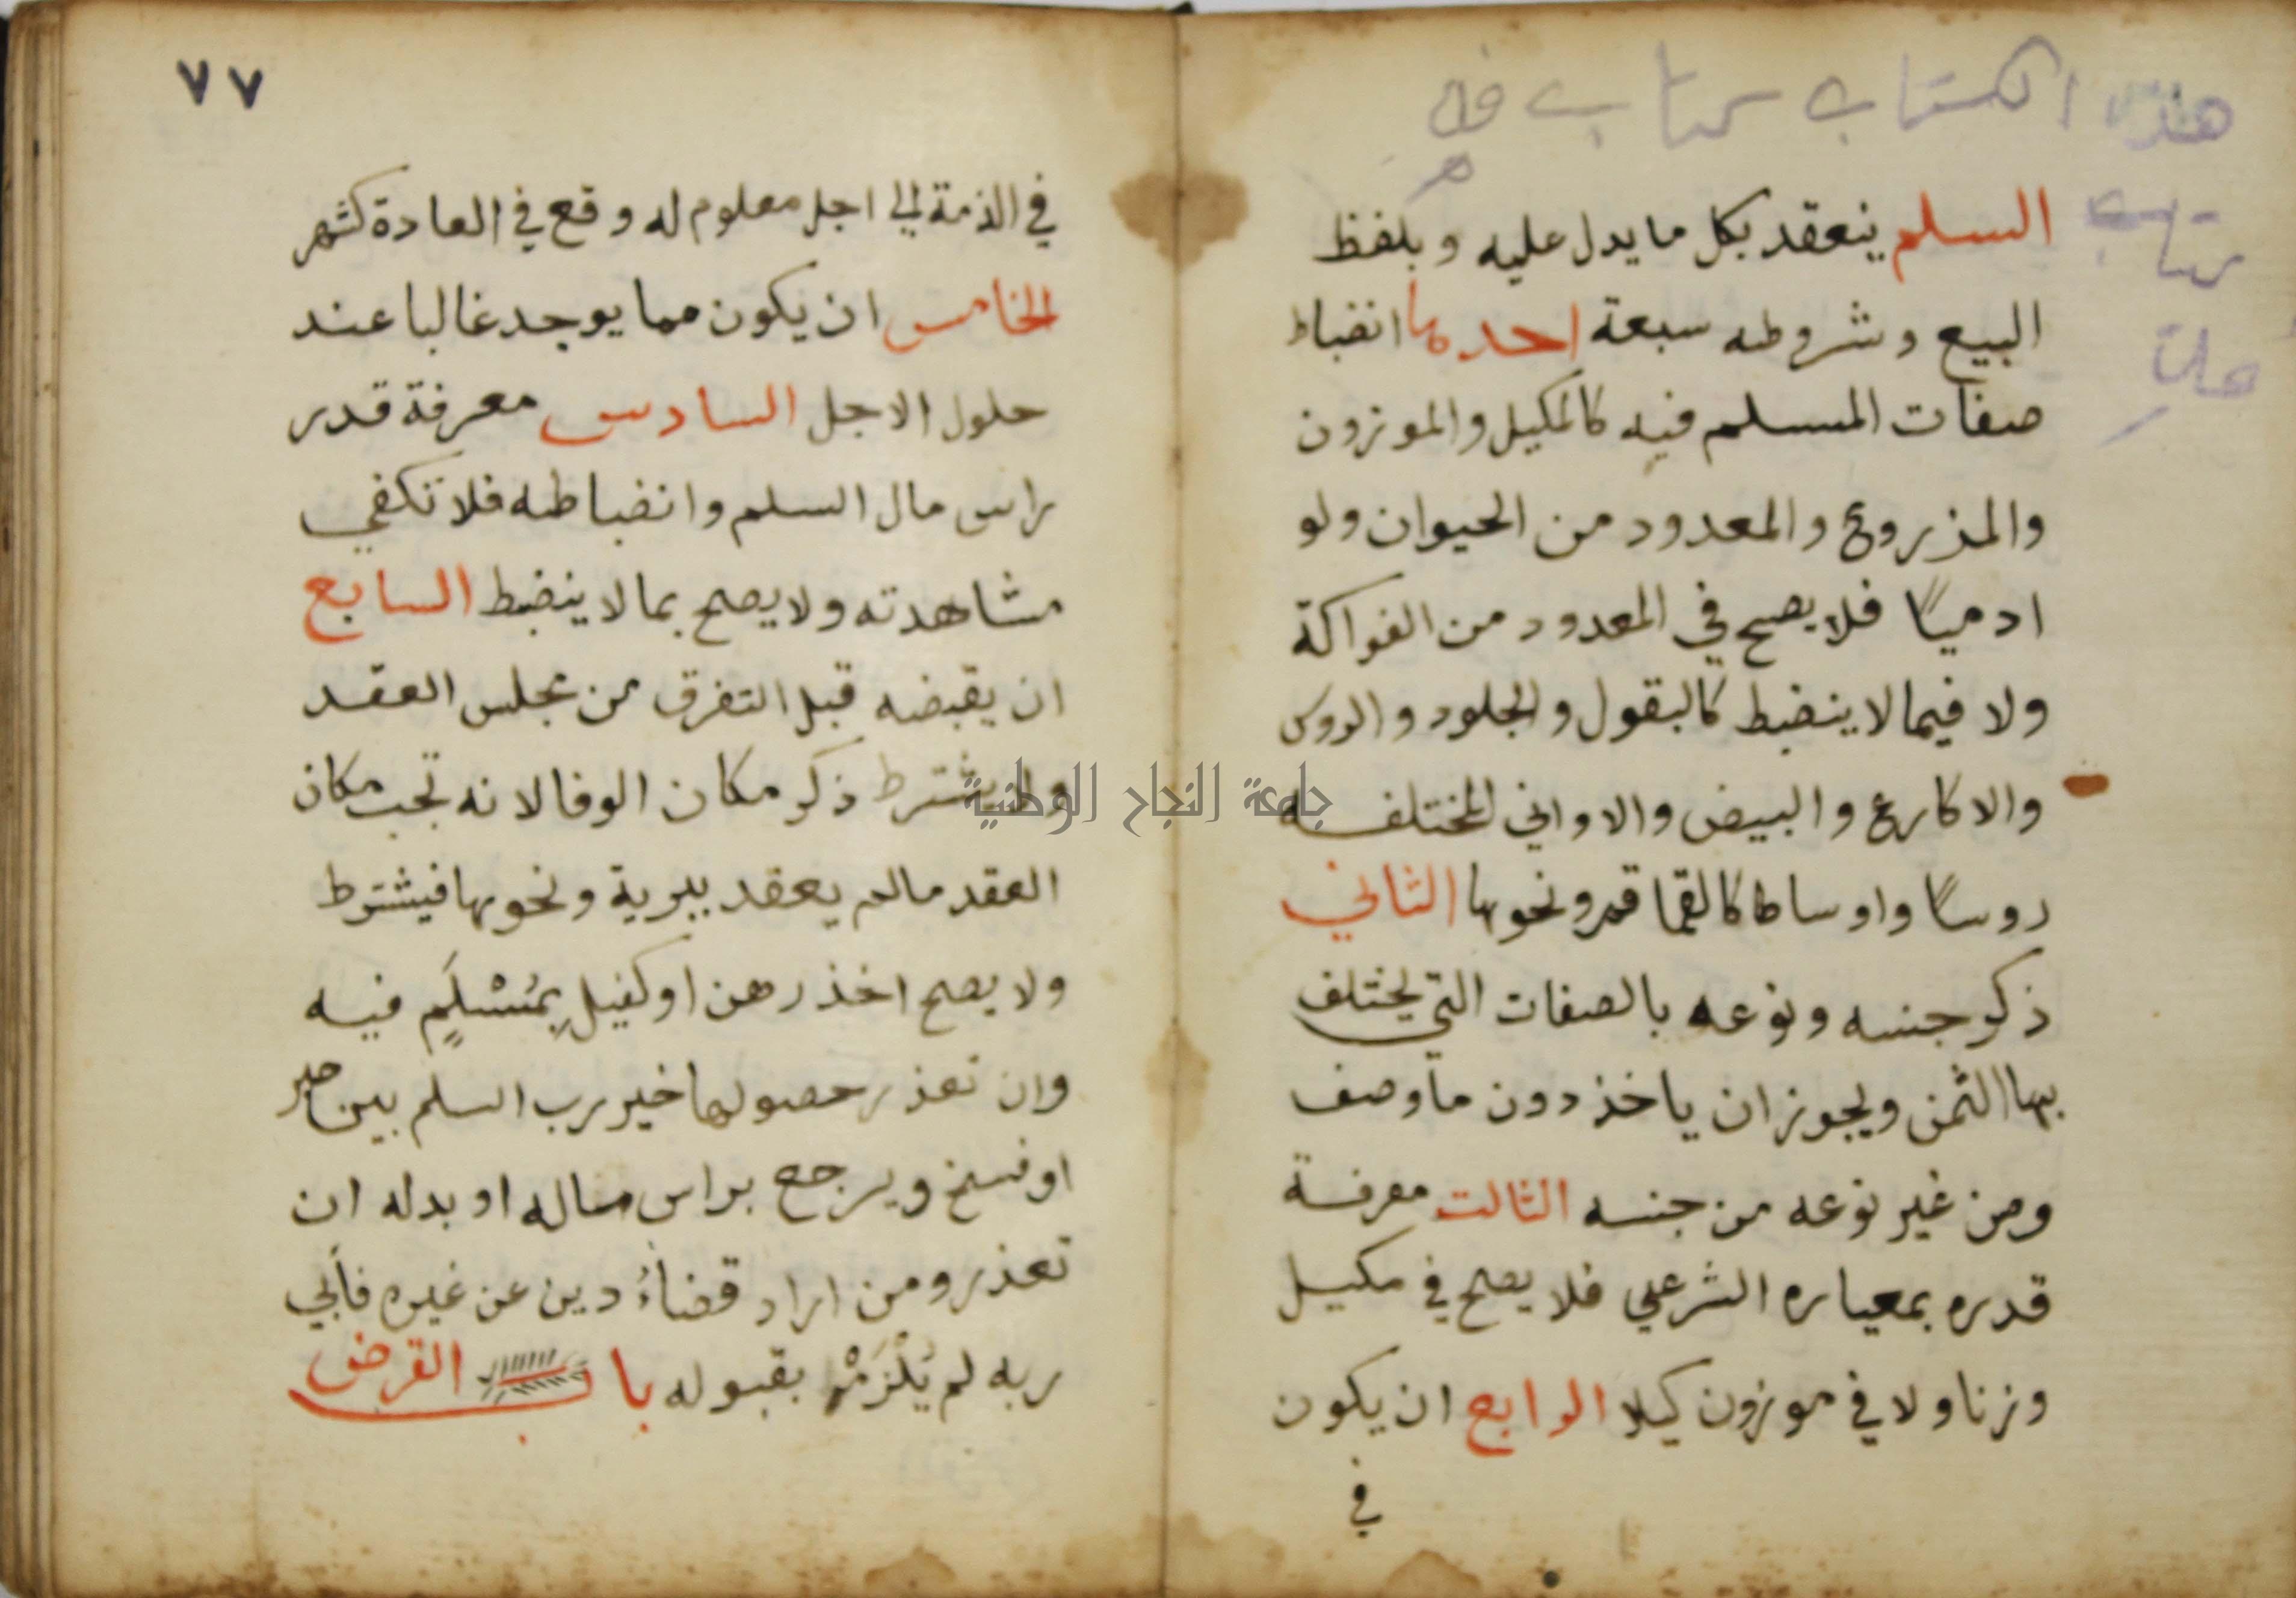 هذا الكتاب كتاب
كتاب
السلم ينعقد بكل ما يدل عليه وبلفظ
البيع وشروطه سبعة احدها انضباط
صفات المسلم فيه كالمكيل والموزون
والمذروع والمعدود من الحيوان ولو
ادمياً فلا يصح في المعدود من الفواكة
ولا فيما لا ينضبط كالبقول والجلود والروس
والاكارع والبيض والاواني المختلفه
روساً واوساطا كالقماقم ونحوها الثاني
ذكر جنسه ونوعه بالصفات التي يختلف
بها الثمن ويجوز ان ياخذ دون ما وصف
ومن غير نوعه من جنسه الثالت معرفة
قدره بمعياره الشرعي فلا يصح في مكيل
وزنا ولا في موزون كيلا الرابع ان يكون
في
٧٧
في الذمة الى اجل معلوم له وقع في العادة كشهر
الخامس ان يكون مما يوجد غالبا عند
حلول الاجل السادس معرفة قدر
راس مال السلم وانضباطه فلا تكفي
مشاهدته ولا يصح بما لا ينضبط السابع
ان يقبضه قبل التفرق من مجلس العقد
ولا يشترط ذكر مكان الوفا لانه تجب مكان
العقد مالم يعقد ببرية ونحوها فيشترط
ولا يصح اخذ رهن او كفيل بِمُسْلَمٍ فيه
وان تعذر حصولها خير رب السلم بين صبر
او فسخ ويرجع براس ماله او بدله ان
تعذر ومن اراد قضاءُ دين عن غيره فابي
ربه لم يُلْزَمْ بقبوله باب القرض
جامعة النجاح الوطنية